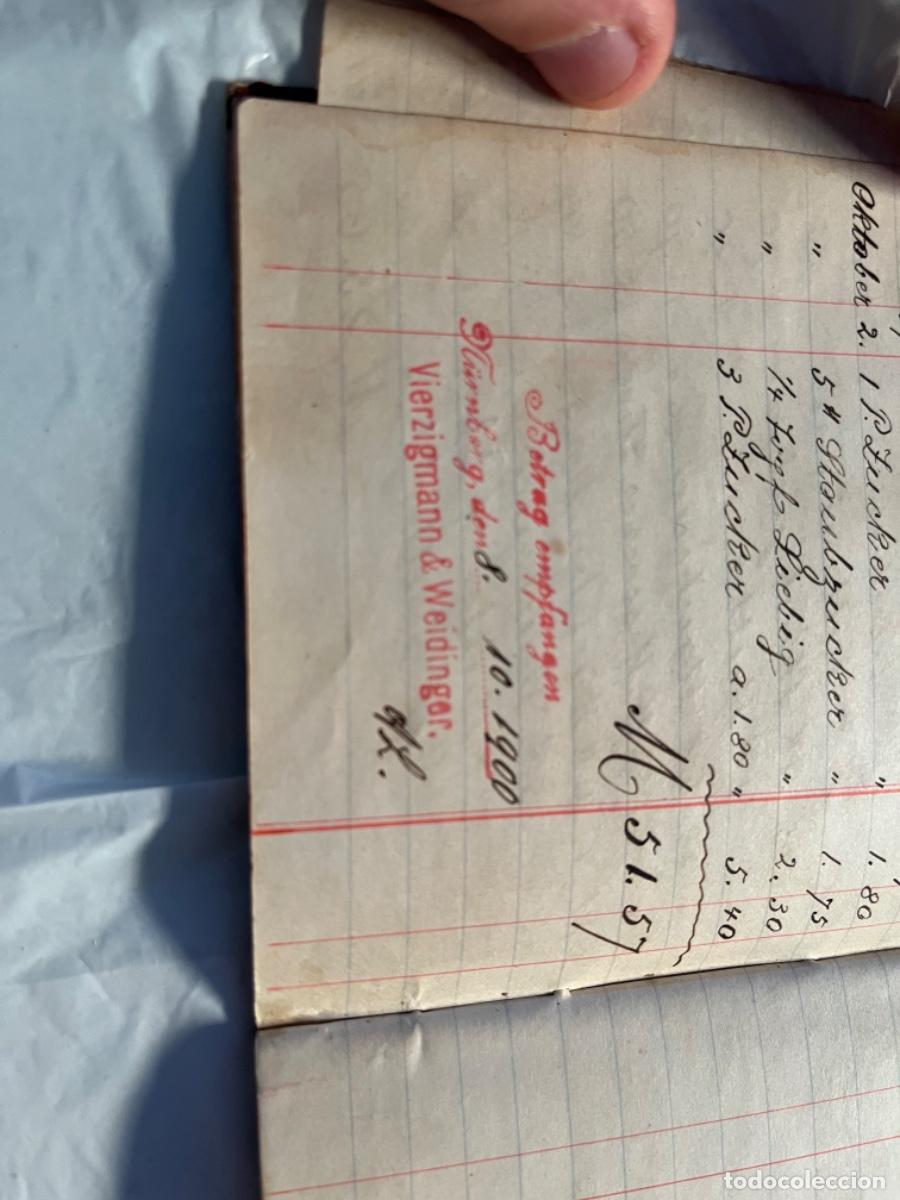 Oktober 2. 1 P. Zucker " 1.80
" 5 ℔ Staubzucker " 1.75
" 1/4 Liebig " 2.30
" 3 P. Zucker a. 1.80 " 5.40
M 51.57
Betrag empfangen
Nürnberg, den 8. 10. 1900
Vierzigmann & Weidinger.
todocoleccion